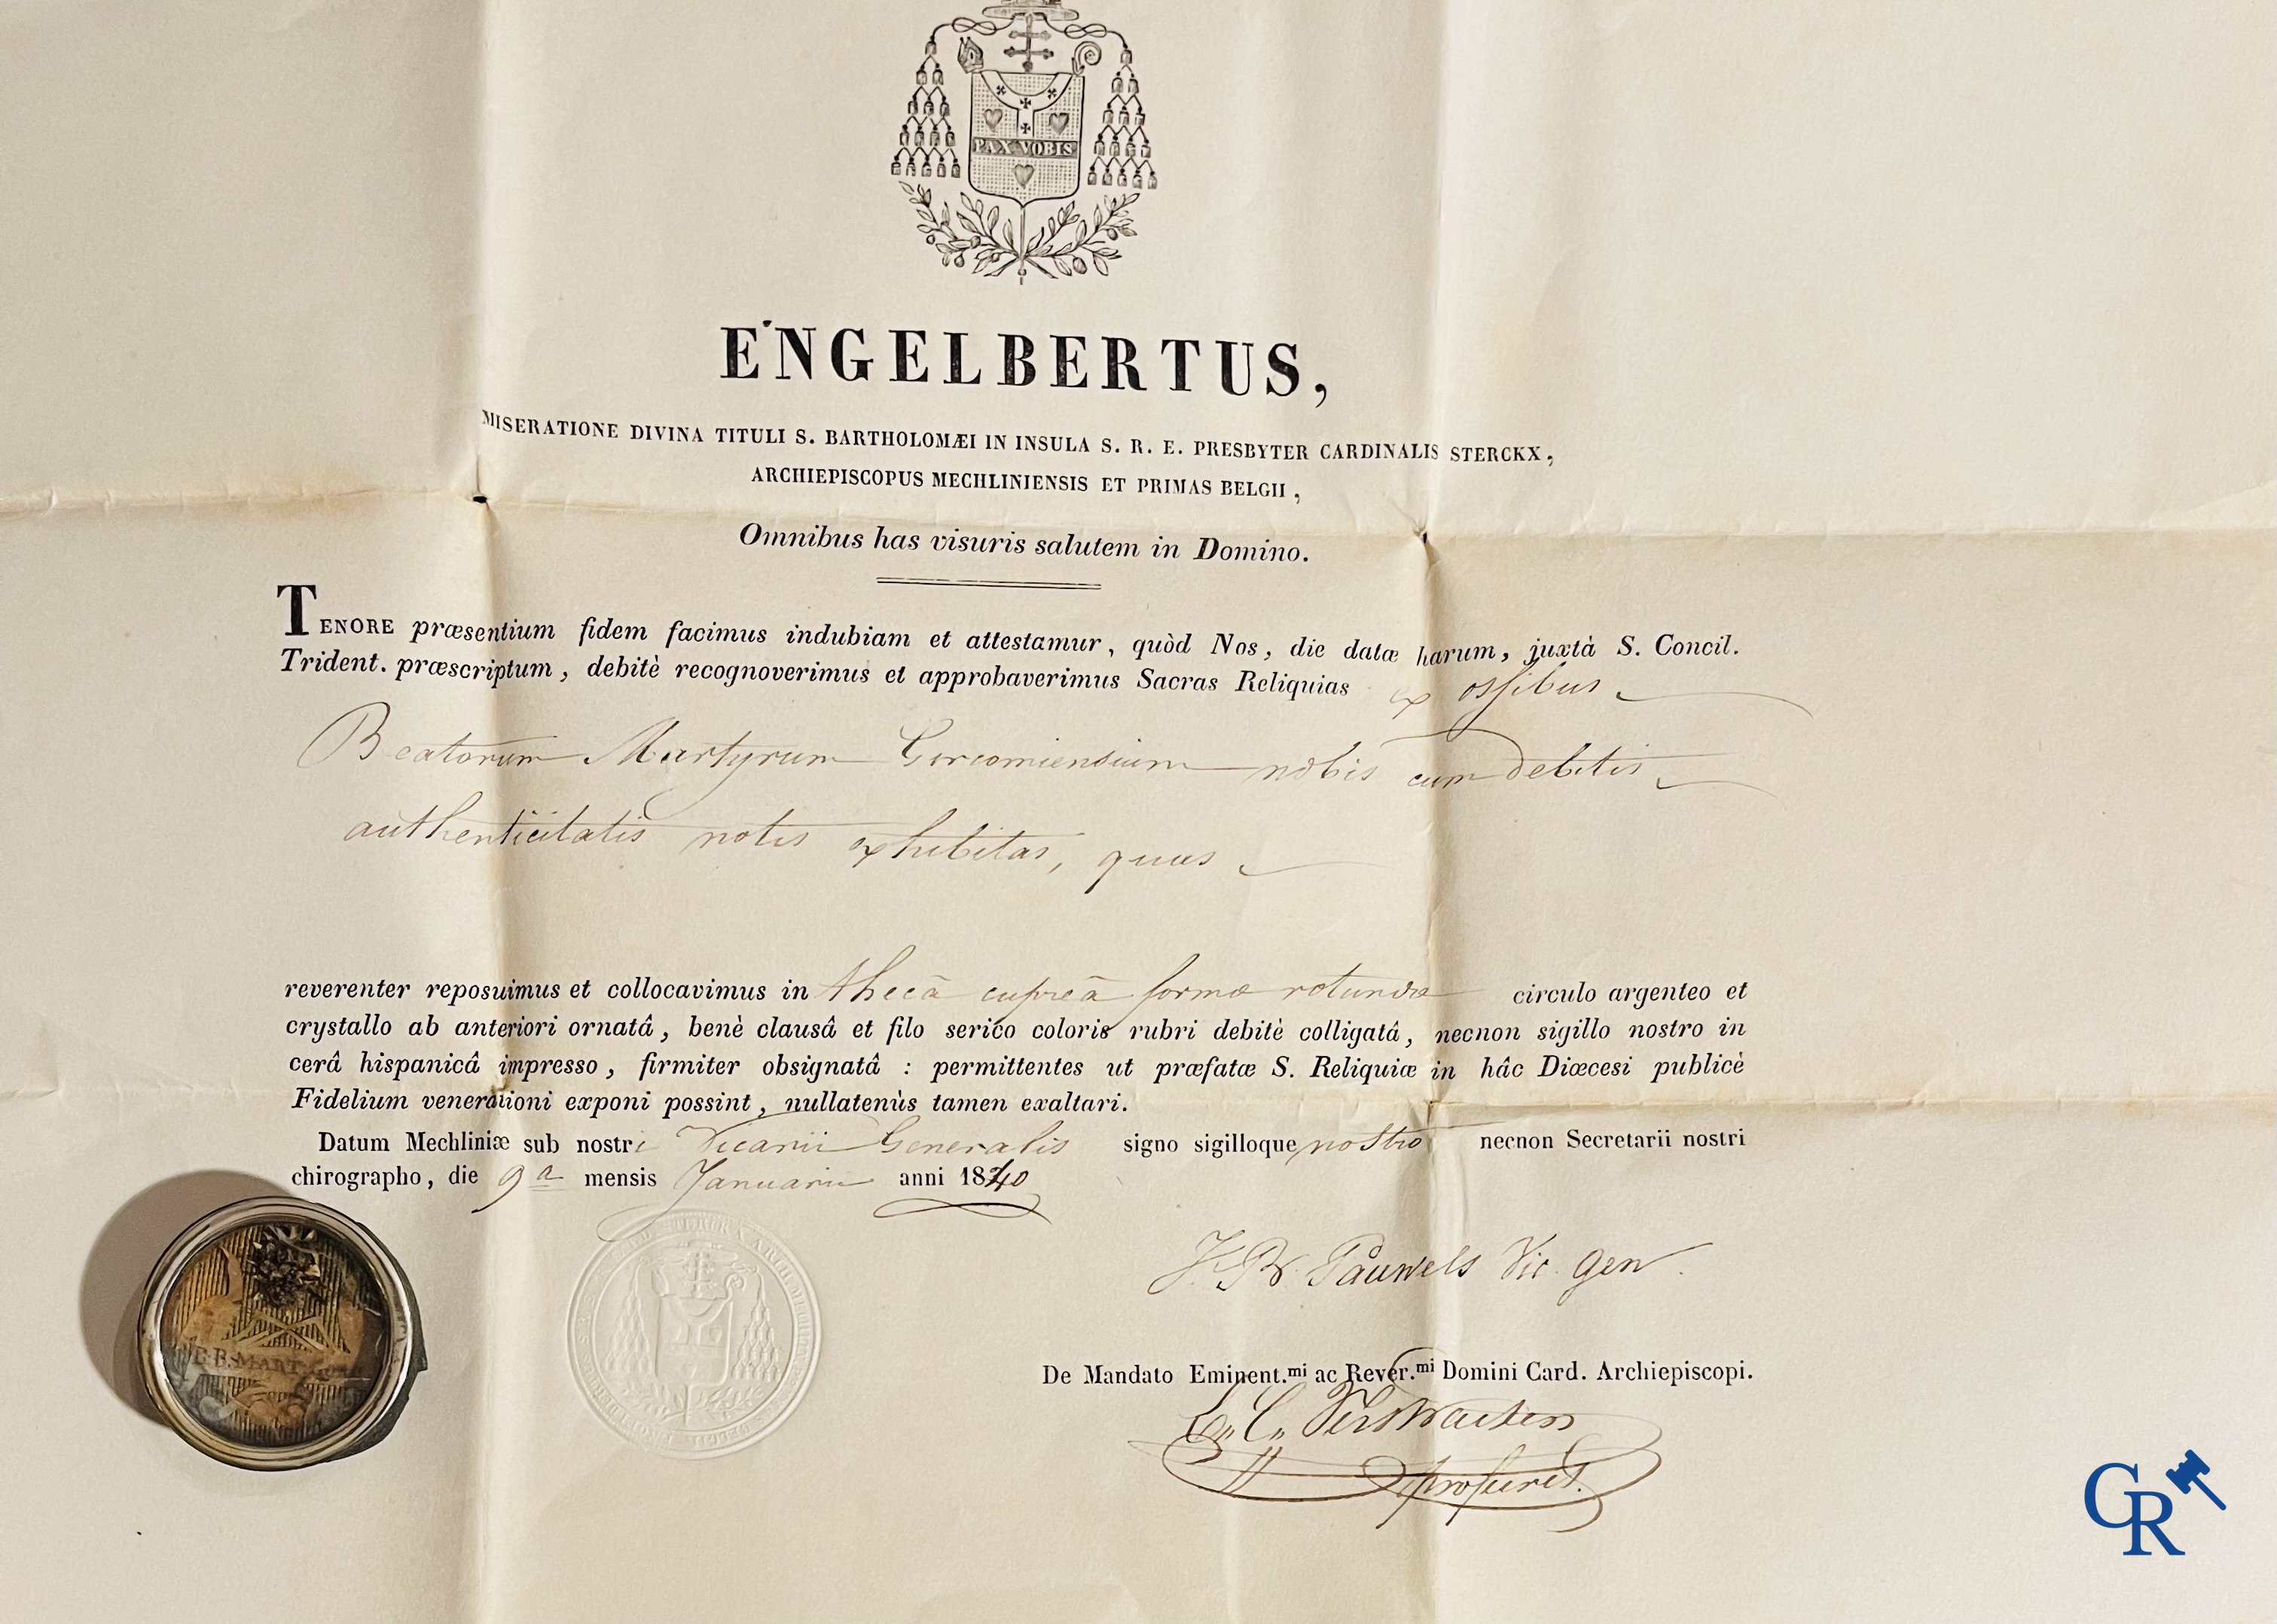 PAX VOBIS
ENGELBERTUS,
MISERATIONE DIVINA TITULI S. BARTHOLOMÆI IN INSULA S. R. E. PRESBYTER CARDINALIS STERCKX,
ARCHIEPISCOPUS MECHLINIENSIS ET PRIMAS BELGII,
Omnibus has visuris salutem in Domino.
TENORE præsentium fidem facimus indubiam et attestamur, quòd Nos, die datæ harum, juxtà S. Concil.
Trident. præscriptum, debitè recognoverimus et approbaverimus Sacras Reliquias ex ossibus
Beatorum Martyrum Gorcomiensium nobis cum debitis
authenticitatis notis exhibitas, quas
reverenter reposuimus et collocavimus in thecâ cupreâ formæ rotundæ circulo argenteo et
crystallo ab anteriori ornatâ, benè clausâ et filo serico coloris rubri debitè colligatâ, necnon sigillo nostro in
cerâ hispanicâ impresso, firmiter obsignatâ : permittentes ut præfatæ S. Reliquiæ in hâc Diœcesi publicè
Fidelium venerationi exponi possint, nullatenùs tamen exaltari.
Datum Mechliniæ sub nostri Vicarii Generalis signo sigilloque nostro necnon Secretarii nostri
chirographo, die 9a mensis Januarii anni 1840
J. B. Pauwels Vic. gen.
De Mandato Eminent.mi ac Rever.mi Domini Card. Archiepiscopi.
prosecret.
B. MART.
CR